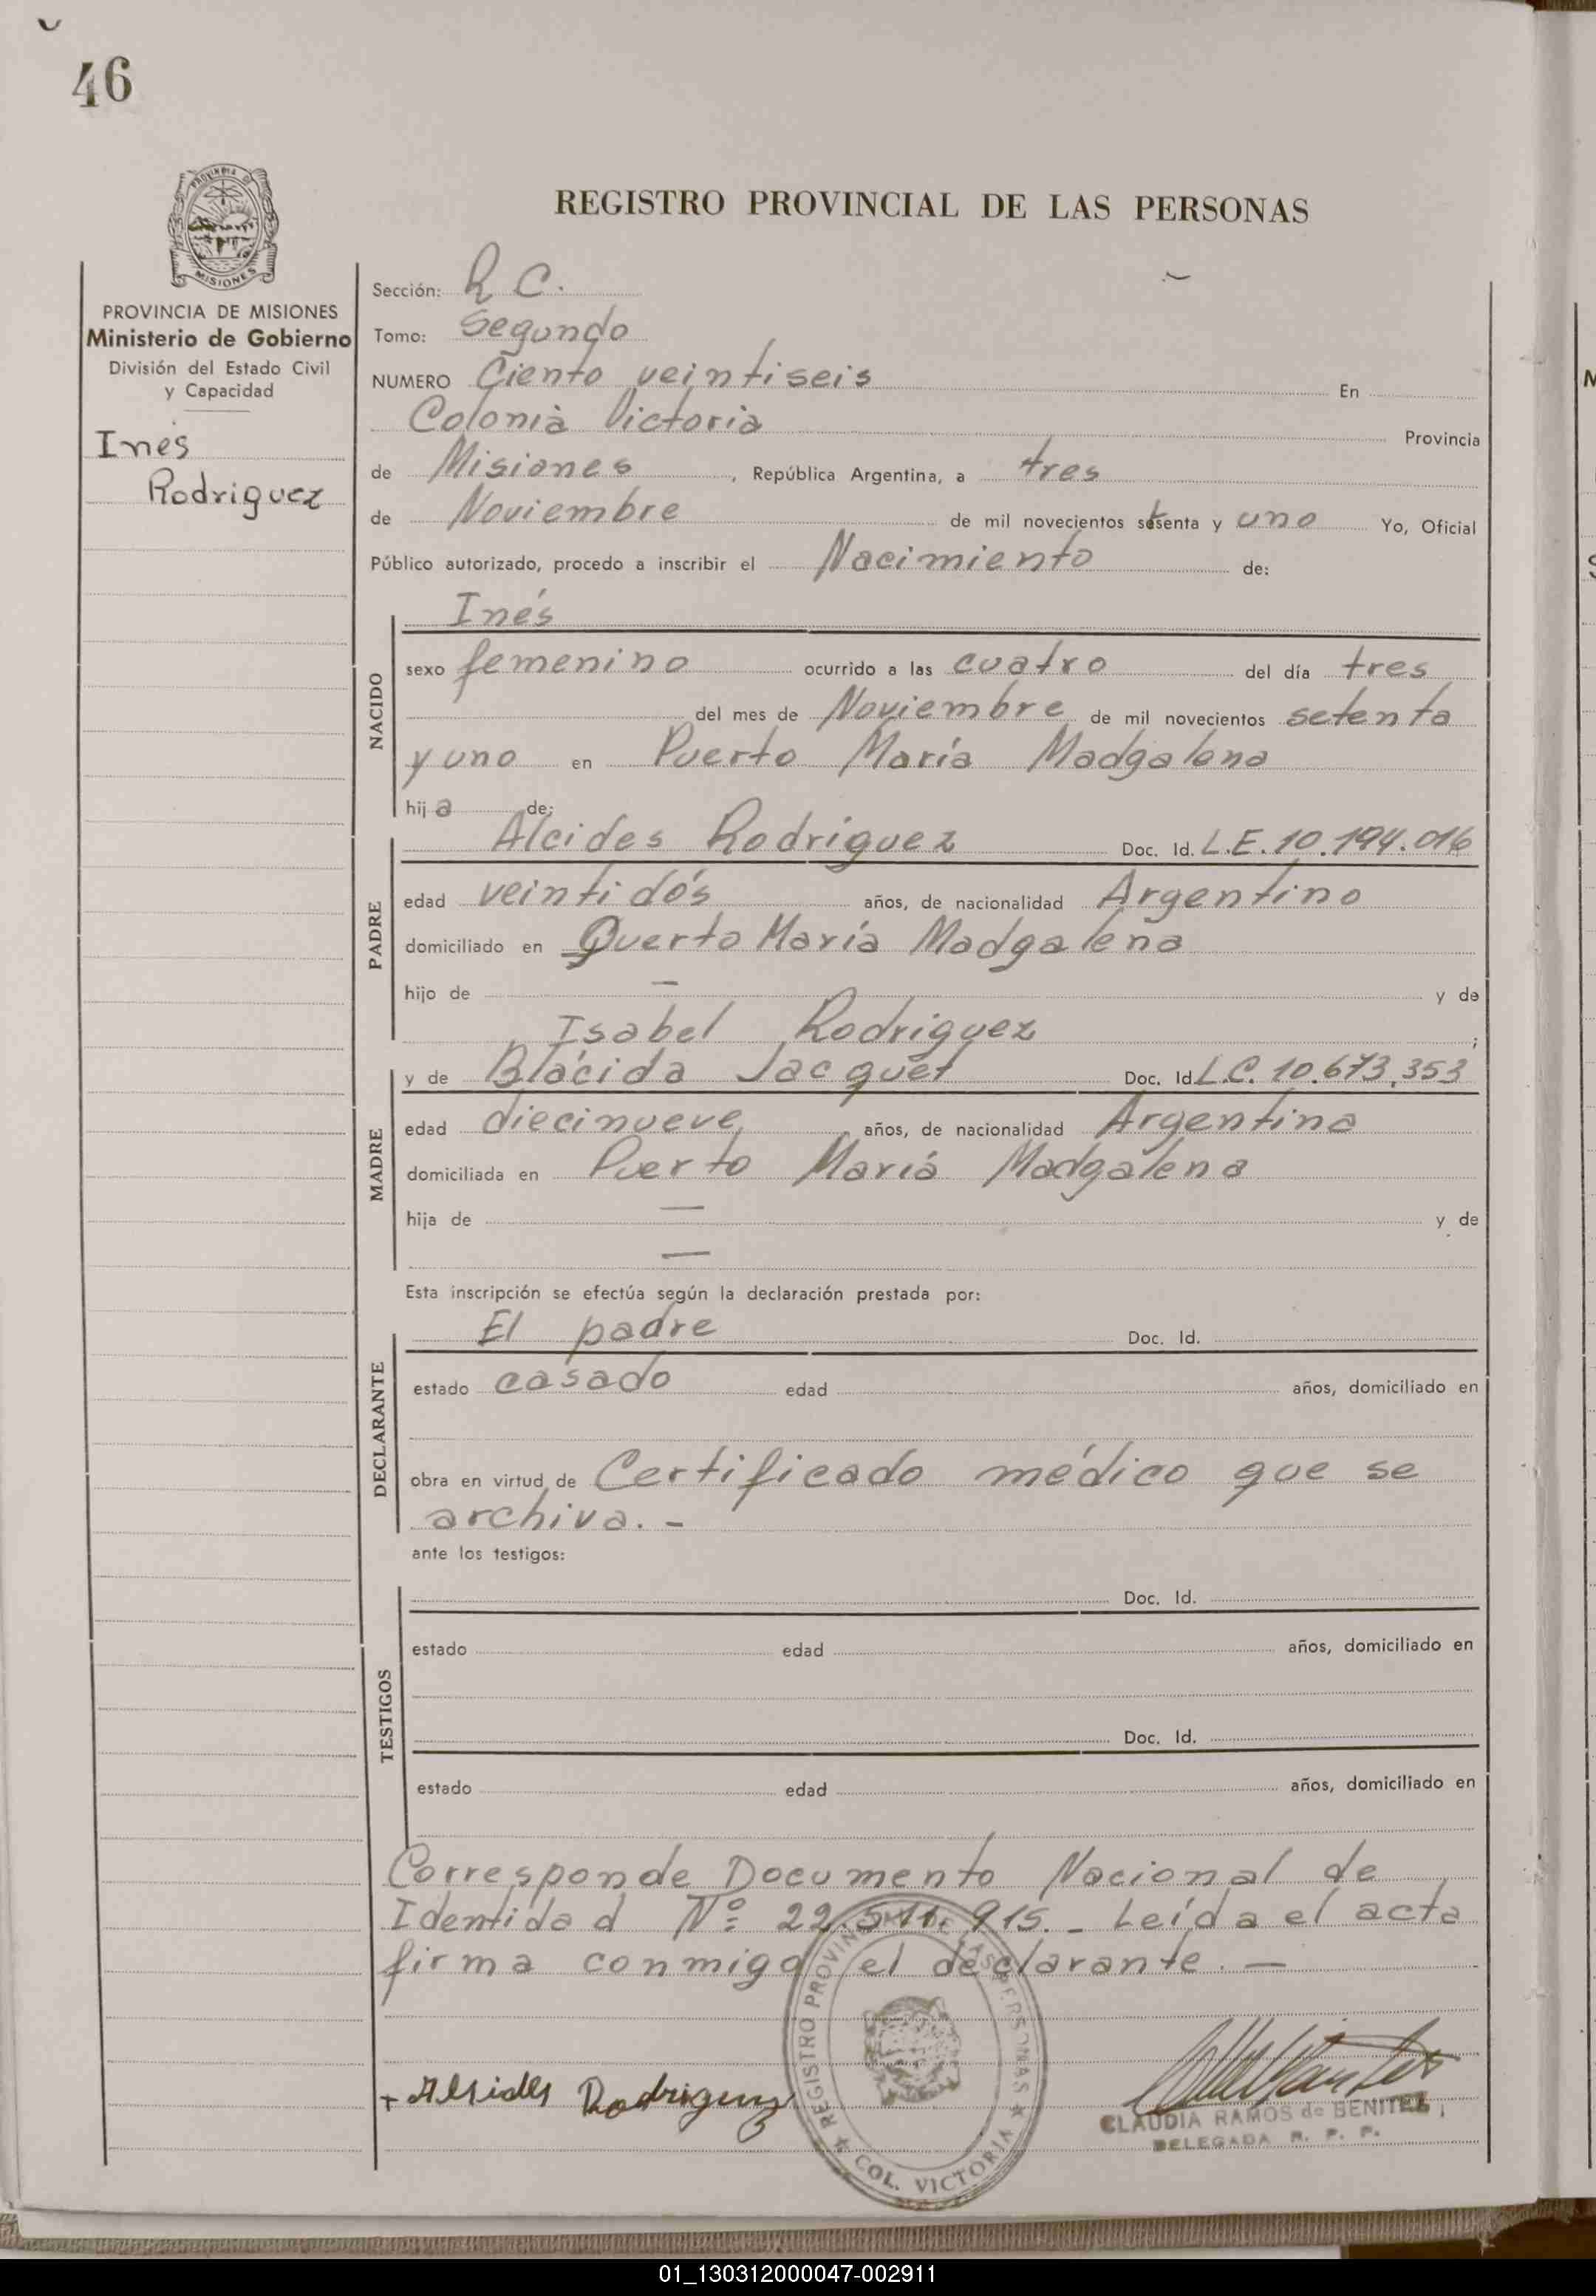 46
PROVINCIA DE
MISIONES
PROVINCIA DE MISIONES
Ministerio de Gobierno
División del Estado Civil
y Capacidad
Inés
Rodriguez
REGISTRO PROVINCIAL DE LAS PERSONAS
Sección: R C.
Tomo: Segundo
NUMERO Ciento veintiseis En
Colonia Victoria Provincia
de Misiones, República Argentina, a tres
de Noviembre de mil novecientos setenta y uno Yo, Oficial
Público autorizado, procedo a inscribir el Nacimiento de:
NACIDO
Inés
sexo femenino ocurrido a las cuatro del día tres
del mes de Noviembre de mil novecientos setenta
y uno en Puerto María Madgalena
hija de:
PADRE
Alcides Rodríguez Doc. Id. L.E. 10.194.016
edad veintidós años, de nacionalidad Argentino
domiciliado en Puerto María Madgalena
hijo de — y de
Isabel Rodriguez ;
MADRE
y de Blácida Jacquet Doc. Id. L.C. 10.673.353
edad diecinueve años, de nacionalidad Argentina
domiciliada en Puerto María Madgalena
hija de — y de
—
Esta inscripción se efectúa según la declaración prestada por:
DECLARANTE
El padre Doc. Id.
estado casado edad años, domiciliado en
obra en virtud de Certificado médico que se
archiva. -
ante los testigos:
TESTIGOS
Doc. Id.
estado edad años, domiciliado en
Doc. Id.
estado edad años, domiciliado en
Corresponde Documento Nacional de
Identidad Nº 22.511.915. - Leída el acta
firma conmigo el declarante. —
REGISTRO PROVINCIAL DE LAS PERSONAS
COL. VICTORIA
+ Alsides Rodriguez
CLAUDIA RAMOS de BENITEZ
DELEGADA R. P. P.
01_130312000047-002911